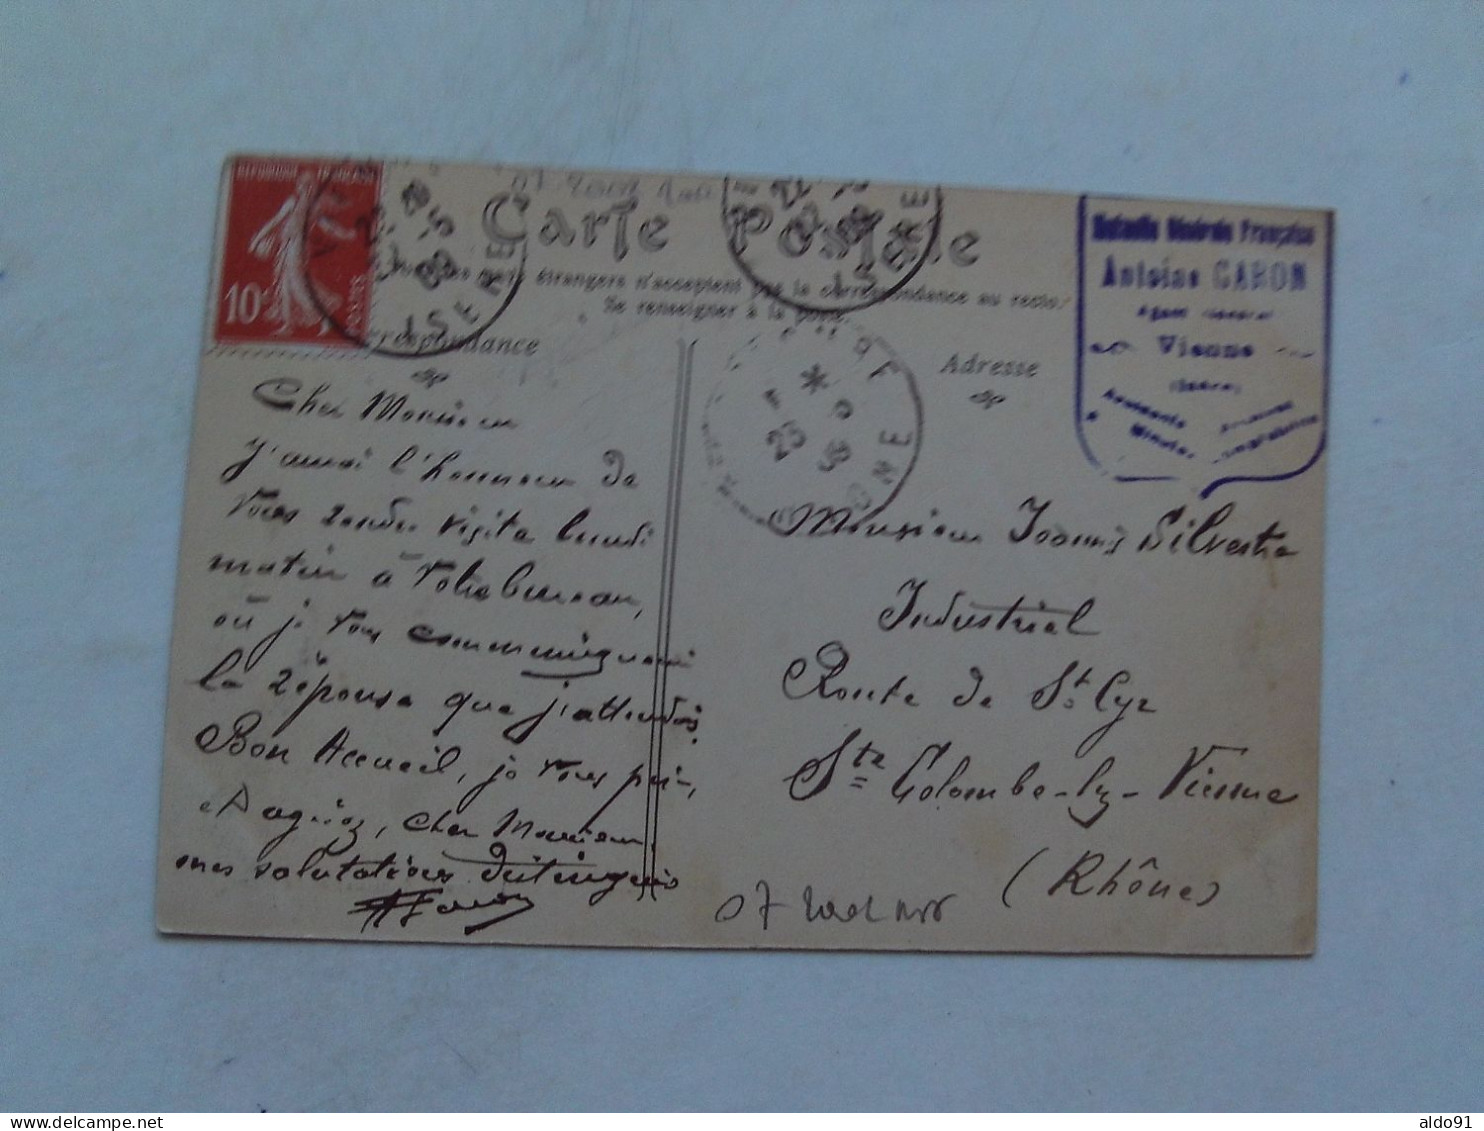 RÉPUBLIQUE FRANÇAISE
10
POSTES
Carte Postale
étrangers n'acceptent pas la correspondance au recto.
Se renseigner à la poste.
Correspondance
Adresse
ISERE
RHONE
Mutuelle Générale Française
Antoine CARON
Agent Général
Vienne
(Isère)
Accidents
Cher Monsieur
J'aurai l'honneur de
vous rendre visite lundi
matin à votre bureau,
où je vous communiquerai
la réponse que j'attendais.
Bon Accueil, je vous prie,
et agréez, cher Monsieur,
mes salutations distinguées
Monsieur Joannis Silvestre
Industriel
Route de St Cyr
Ste Colombe-ly-Vienne
(Rhône)
07
aldo91